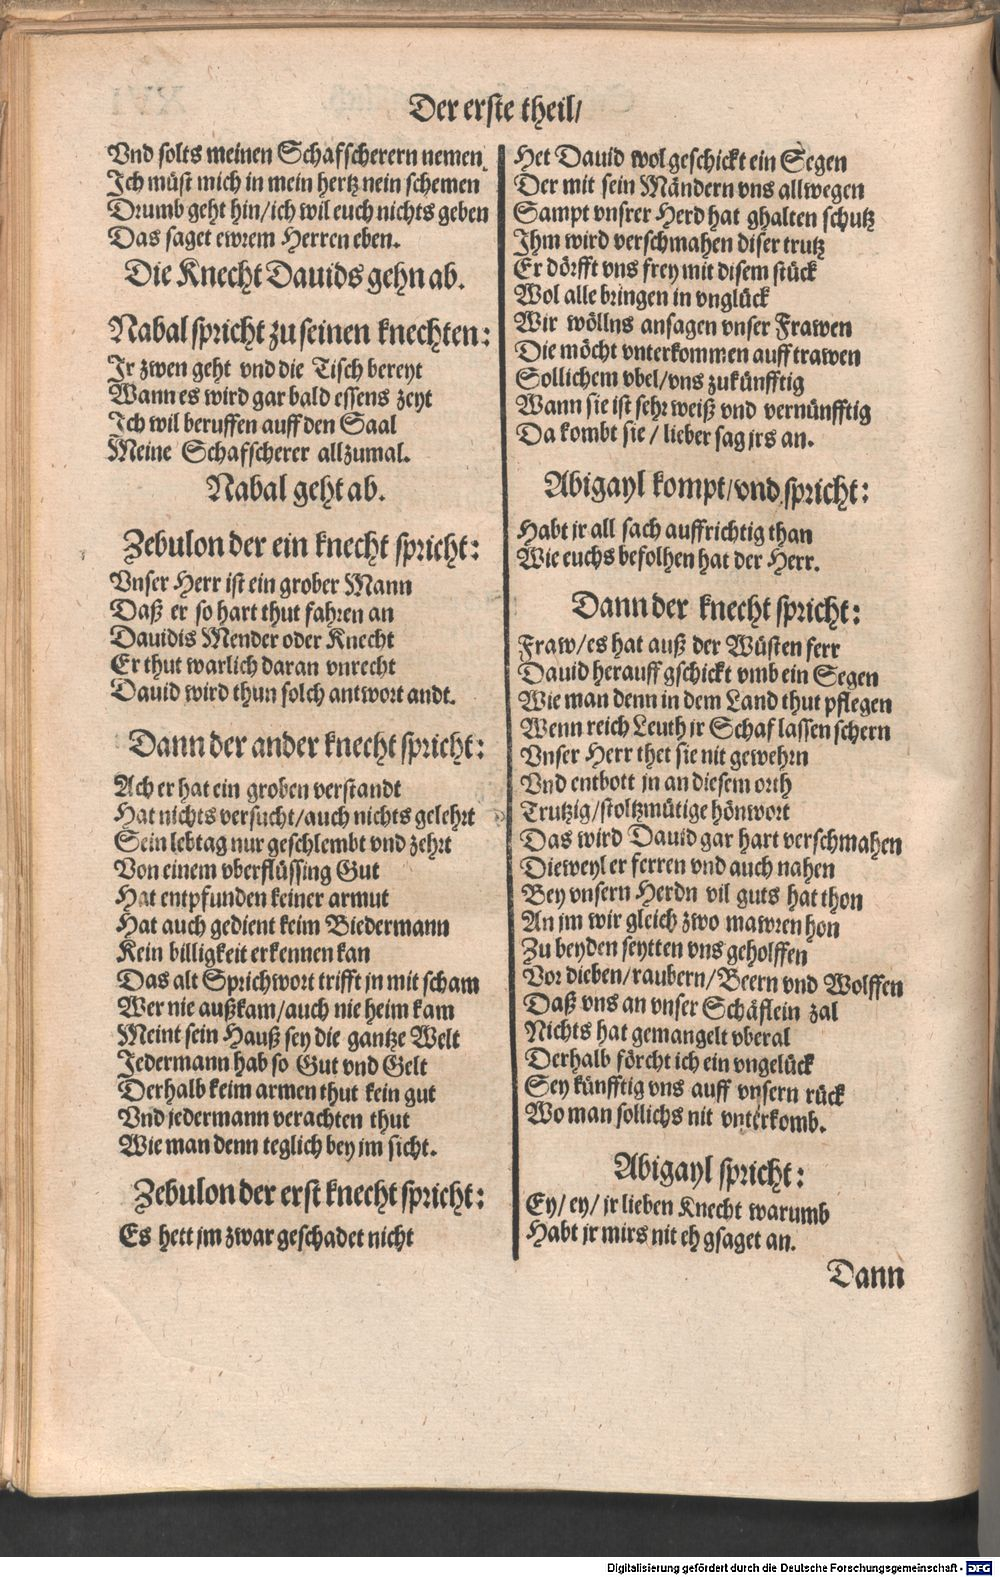 Der erste theil/
Vnd solts meinen Schafscherern nemen
Ich müst mich in mein hertz nein schemen
Drumb geht hin/ich wil euch nichts geben
Das saget ewrem Herren eben.
Die Knecht Dauids gehn ab.
Nabal spricht zu seinen knechten:
Ir zwen geht vnd die Tisch bereyt
Wann es wird gar bald essens zeyt
Ich wil beruffen auff den Saal
Meine Schafscherer allzumal.
Nabal geht ab.
Zebulon der ein knecht spricht:
Vnser Herr ist ein grober Mann
Daß er so hart thut fahren an
Dauidis Mender oder Knecht
Er thut warlich daran vnrecht
Dauid wird thun solch antwort andt.
Dann der ander knecht spricht:
Ach er hat ein groben verstandt
Hat nichts versucht/auch nichts gelehrt
Sein lebtag nur geschlembt vnd zehrt
Von einem vberflüssing Gut
Hat entpfunden keiner armut
Hat auch gedient keim Biedermann
Kein billigkeit erkennen kan
Das alt Sprichwort trifft jn mit scham
Wer nie außkam/auch nie heim kam
Meint sein Hauß sey die gantze Welt
Jedermann hab so Gut vnd Gelt
Derhalb keim armen thut kein gut
Vnd jedermann verachten thut
Wie man denn teglich bey jm sicht.
Zebulon der erst knecht spricht:
Es hett jm zwar geschadet nicht
Het Dauid wol geschickt ein Segen
Der mit sein Mändern vns allwegen
Sampt vnsrer Herd hat ghalten schutz
Ihm wird verschmahen diser trutz
Er dörfft vns frey mit disem stück
Wol alle bringen in vnglück
Wir wöllns ansagen vnser Frawen
Die möcht vnterkommen auff trawen
Sollichem vbel/vns zukünfftig
Wann sie ist sehr weiß vnd vernünfftig
Da kombt sie / lieber sag jrs an.
Abigayl kompt/vnd spricht:
Habt jr all sach auffrichtig than
Wie euchs befolhen hat der Herr.
Dann der knecht spricht:
Fraw/es hat auß der Wüsten ferr
Dauid herauff gschickt vmb ein Segen
Wie man denn in dem Land thut pflegen
Wenn reich Leuth jr Schaf lassen schern
Vnser Herr thet sie nit gewehrn
Vnd entbott jn an diesem orth
Trutzig/stoltzmütige hönwort
Das wird Dauid gar hart verschmahen
Dieweyl er ferren vnd auch nahen
Bey vnsern Herdn vil guts hat thon
An jm wir gleich zwo mawren hon
Zu beyden seytten vns geholffen
Vor dieben/raubern/Beern vnd Wolffen
Daß vns an vnser Schäflein zal
Nichts hat gemangelt vberal
Derhalb förcht ich ein vngelück
Sey künfftig vns auff vnsern rück
Wo man sollichs nit vnterkomb.
Abigayl spricht:
Ey/ ey/ jr lieben Knecht warumb
Habt jr mirs nit eh gsaget an.
Dann
Digitalisierung gefördert durch die Deutsche Forschungsgemeinschaft - DFG